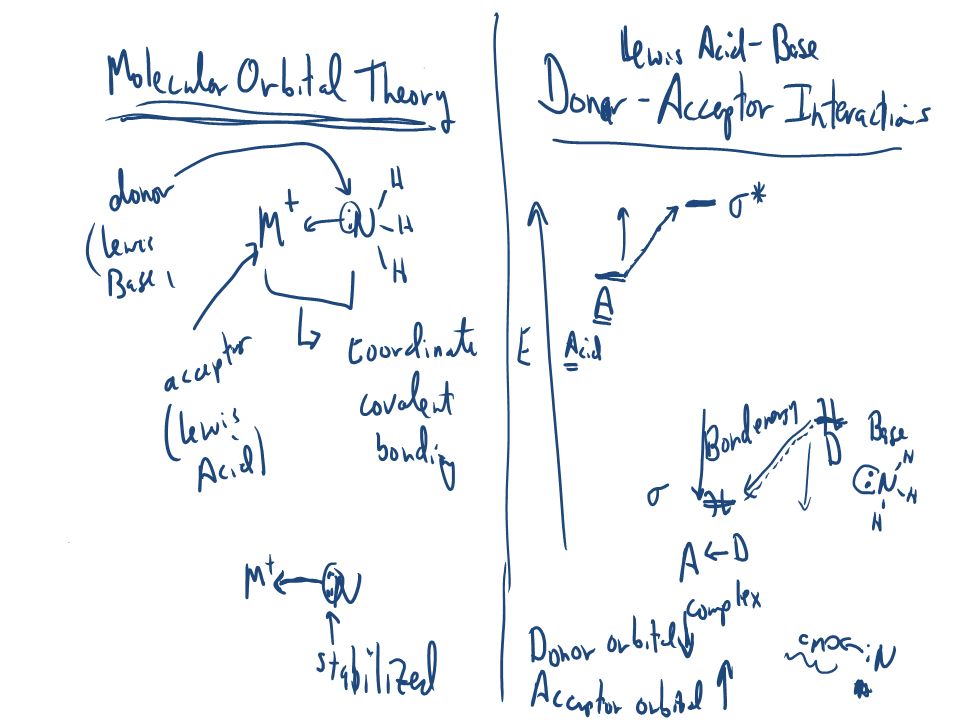 Molecular Orbital Theory
donor
(Lewis
Base)
M+ ← :N
H
H
H
acceptor
(Lewis
Acid)
coordinate
covalent
bonding
M+ ← :N
stabilized
Lewis Acid-Base
Donor-Acceptor Interactions
σ*
A
Acid
E
Bond energy
D
Base
:N
H
H
H
σ
A ← D
complex
Donor orbital ↓
Acceptor orbital ↑
:N